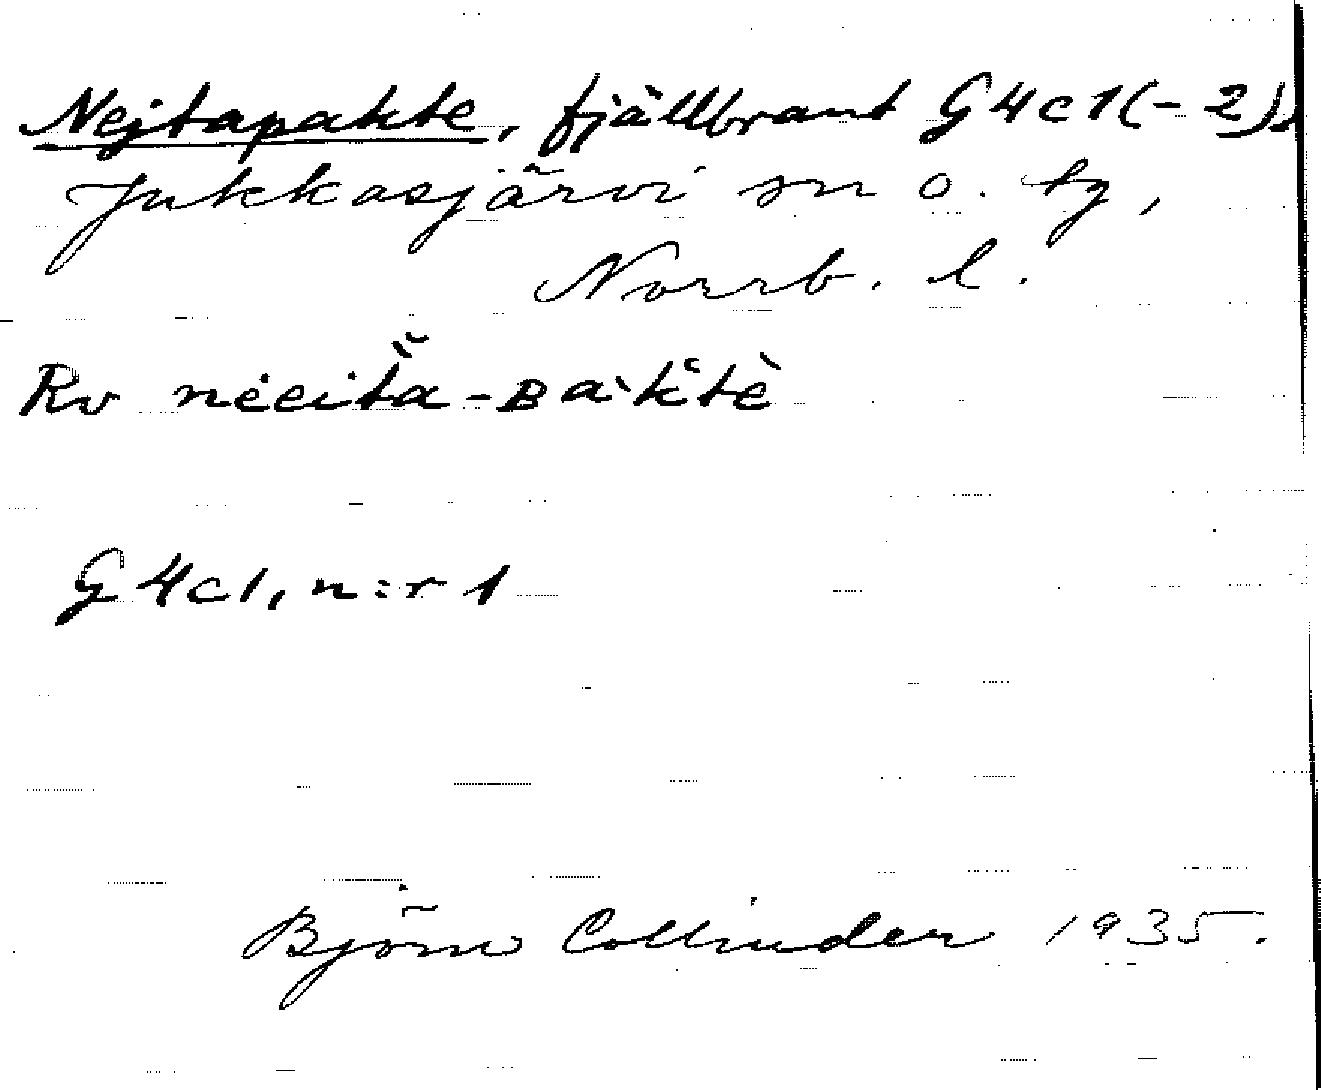 Nejtapakte, fjällbrant G4c1(-2),
Jukkasjärvi sn o. tg,
Norrb. l.
Rv
G4c1, n:r 1
Björn Collinder 1935.